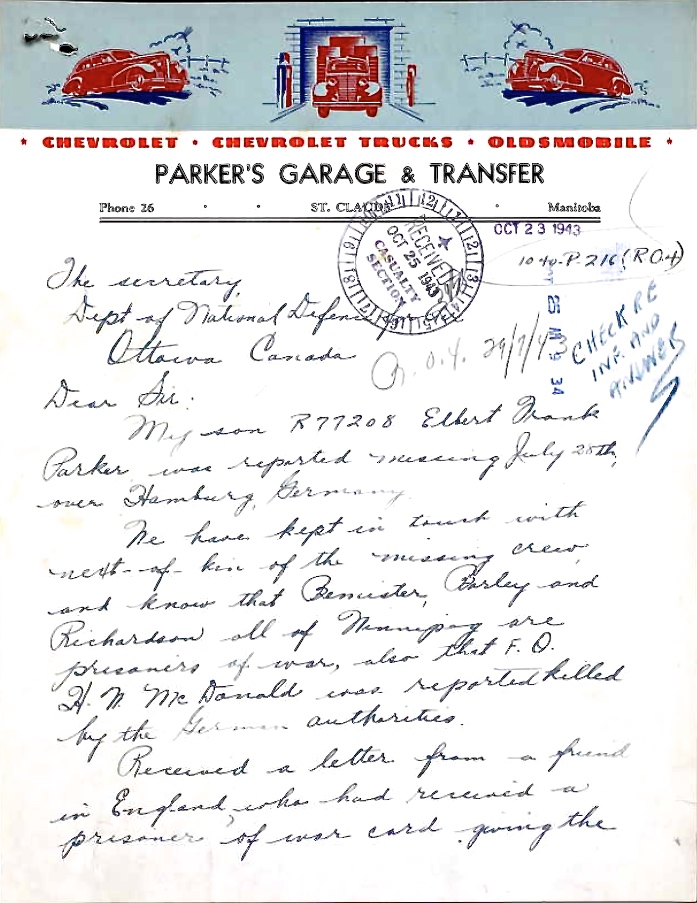 * CHEVROLET · CHEVROLET TRUCKS · OLDSMOBILE *
PARKER'S GARAGE & TRANSFER
Phone 26 · · ST. CLAUDE · Manitoba
OCT 23 1943
1040-P-216 (RO4)
RECEIVED
OCT 25 1943
CASUALTY
SECTION
CHECK RE
INF. AND
ANSWER
29/7/43
The secretary,
Dept of National Defence for
Ottawa Canada
Dear Sir:
My son R77208 Elbert Frank
Parker was reported missing July 28th,
over Hamburg, Germany.
We have kept in touch with
next-of-kin of the missing crew,
and know that Bemister, Barley and
Richardson all of Winnipeg are
prisoners of war, also that F. O.
H. N. McDonald was reported killed
by the German authorities.
Received a letter from a friend
in England, who had received a
prisoner of war card giving the